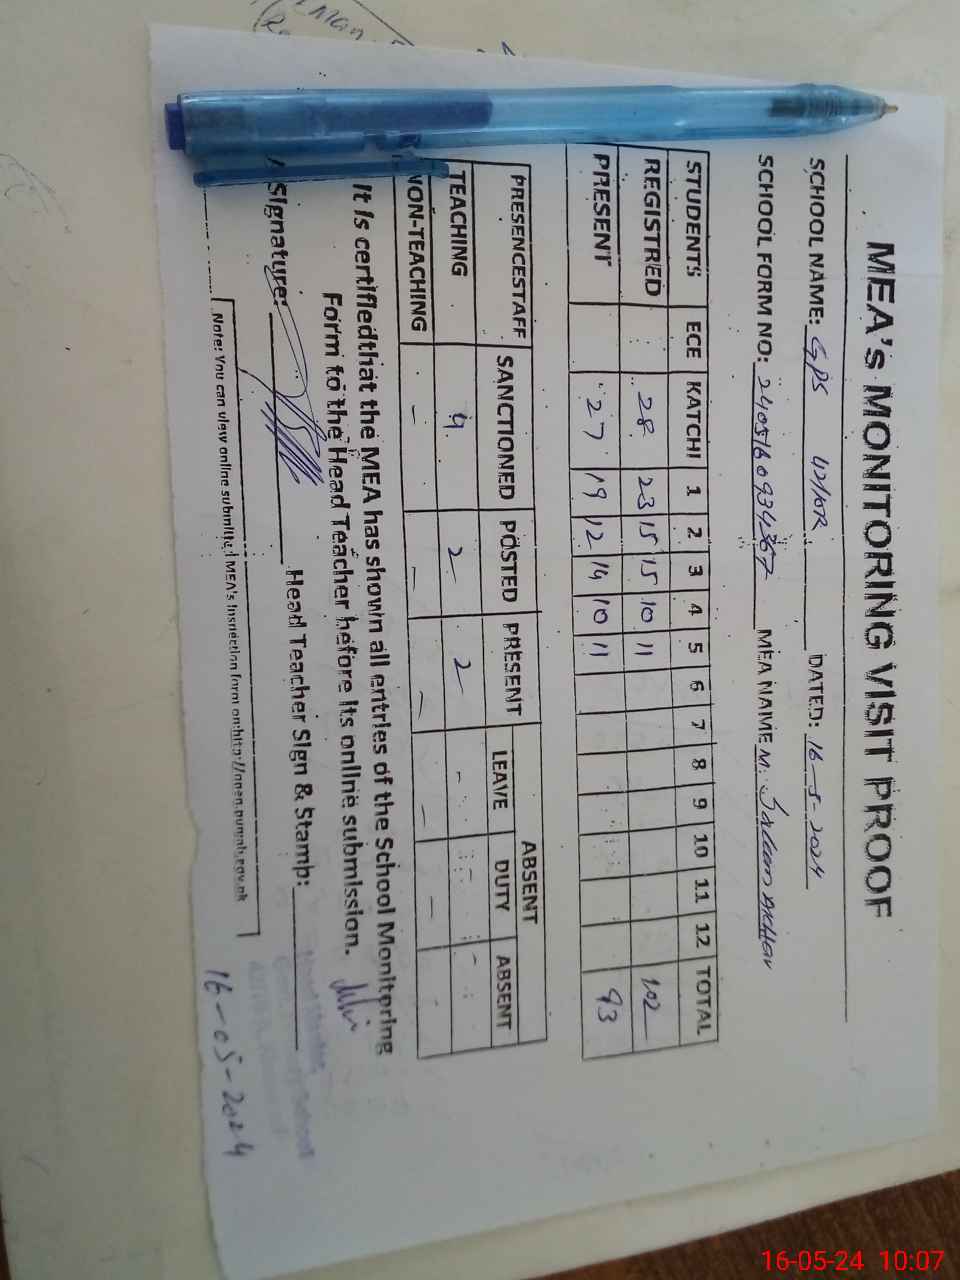 MEA's MONITORING VISIT PROOF
SCHOOL NAME: GPS 42/10R DATED: 16-5-2024
SCHOOL FORM NO: MEA NAME M. Saleem
STUDENTS ECE KATCHI 1 2 3 4 5 6 7 8 9 10 11 12 TOTAL
REGISTRED 28 23 15 15 10 11 102
PRESENT 27 19 12 14 10 11 93
PRESENCESTAFF SANCTIONED POSTED PRESENT ABSENT
LEAVE DUTY ABSENT
TEACHING 4 2 2 - - -
NON-TEACHING - - - - - -
It is certifiedthat the MEA has shown all entries of the School Monitoring
Form to the Head Teacher before its online submission.
Signature: Head Teacher Sign & Stamp:
Note: You can view online submitted MEA's Inspection form on:http://open.punjab.gov.pk
16-05-2024
16-05-24 10:07